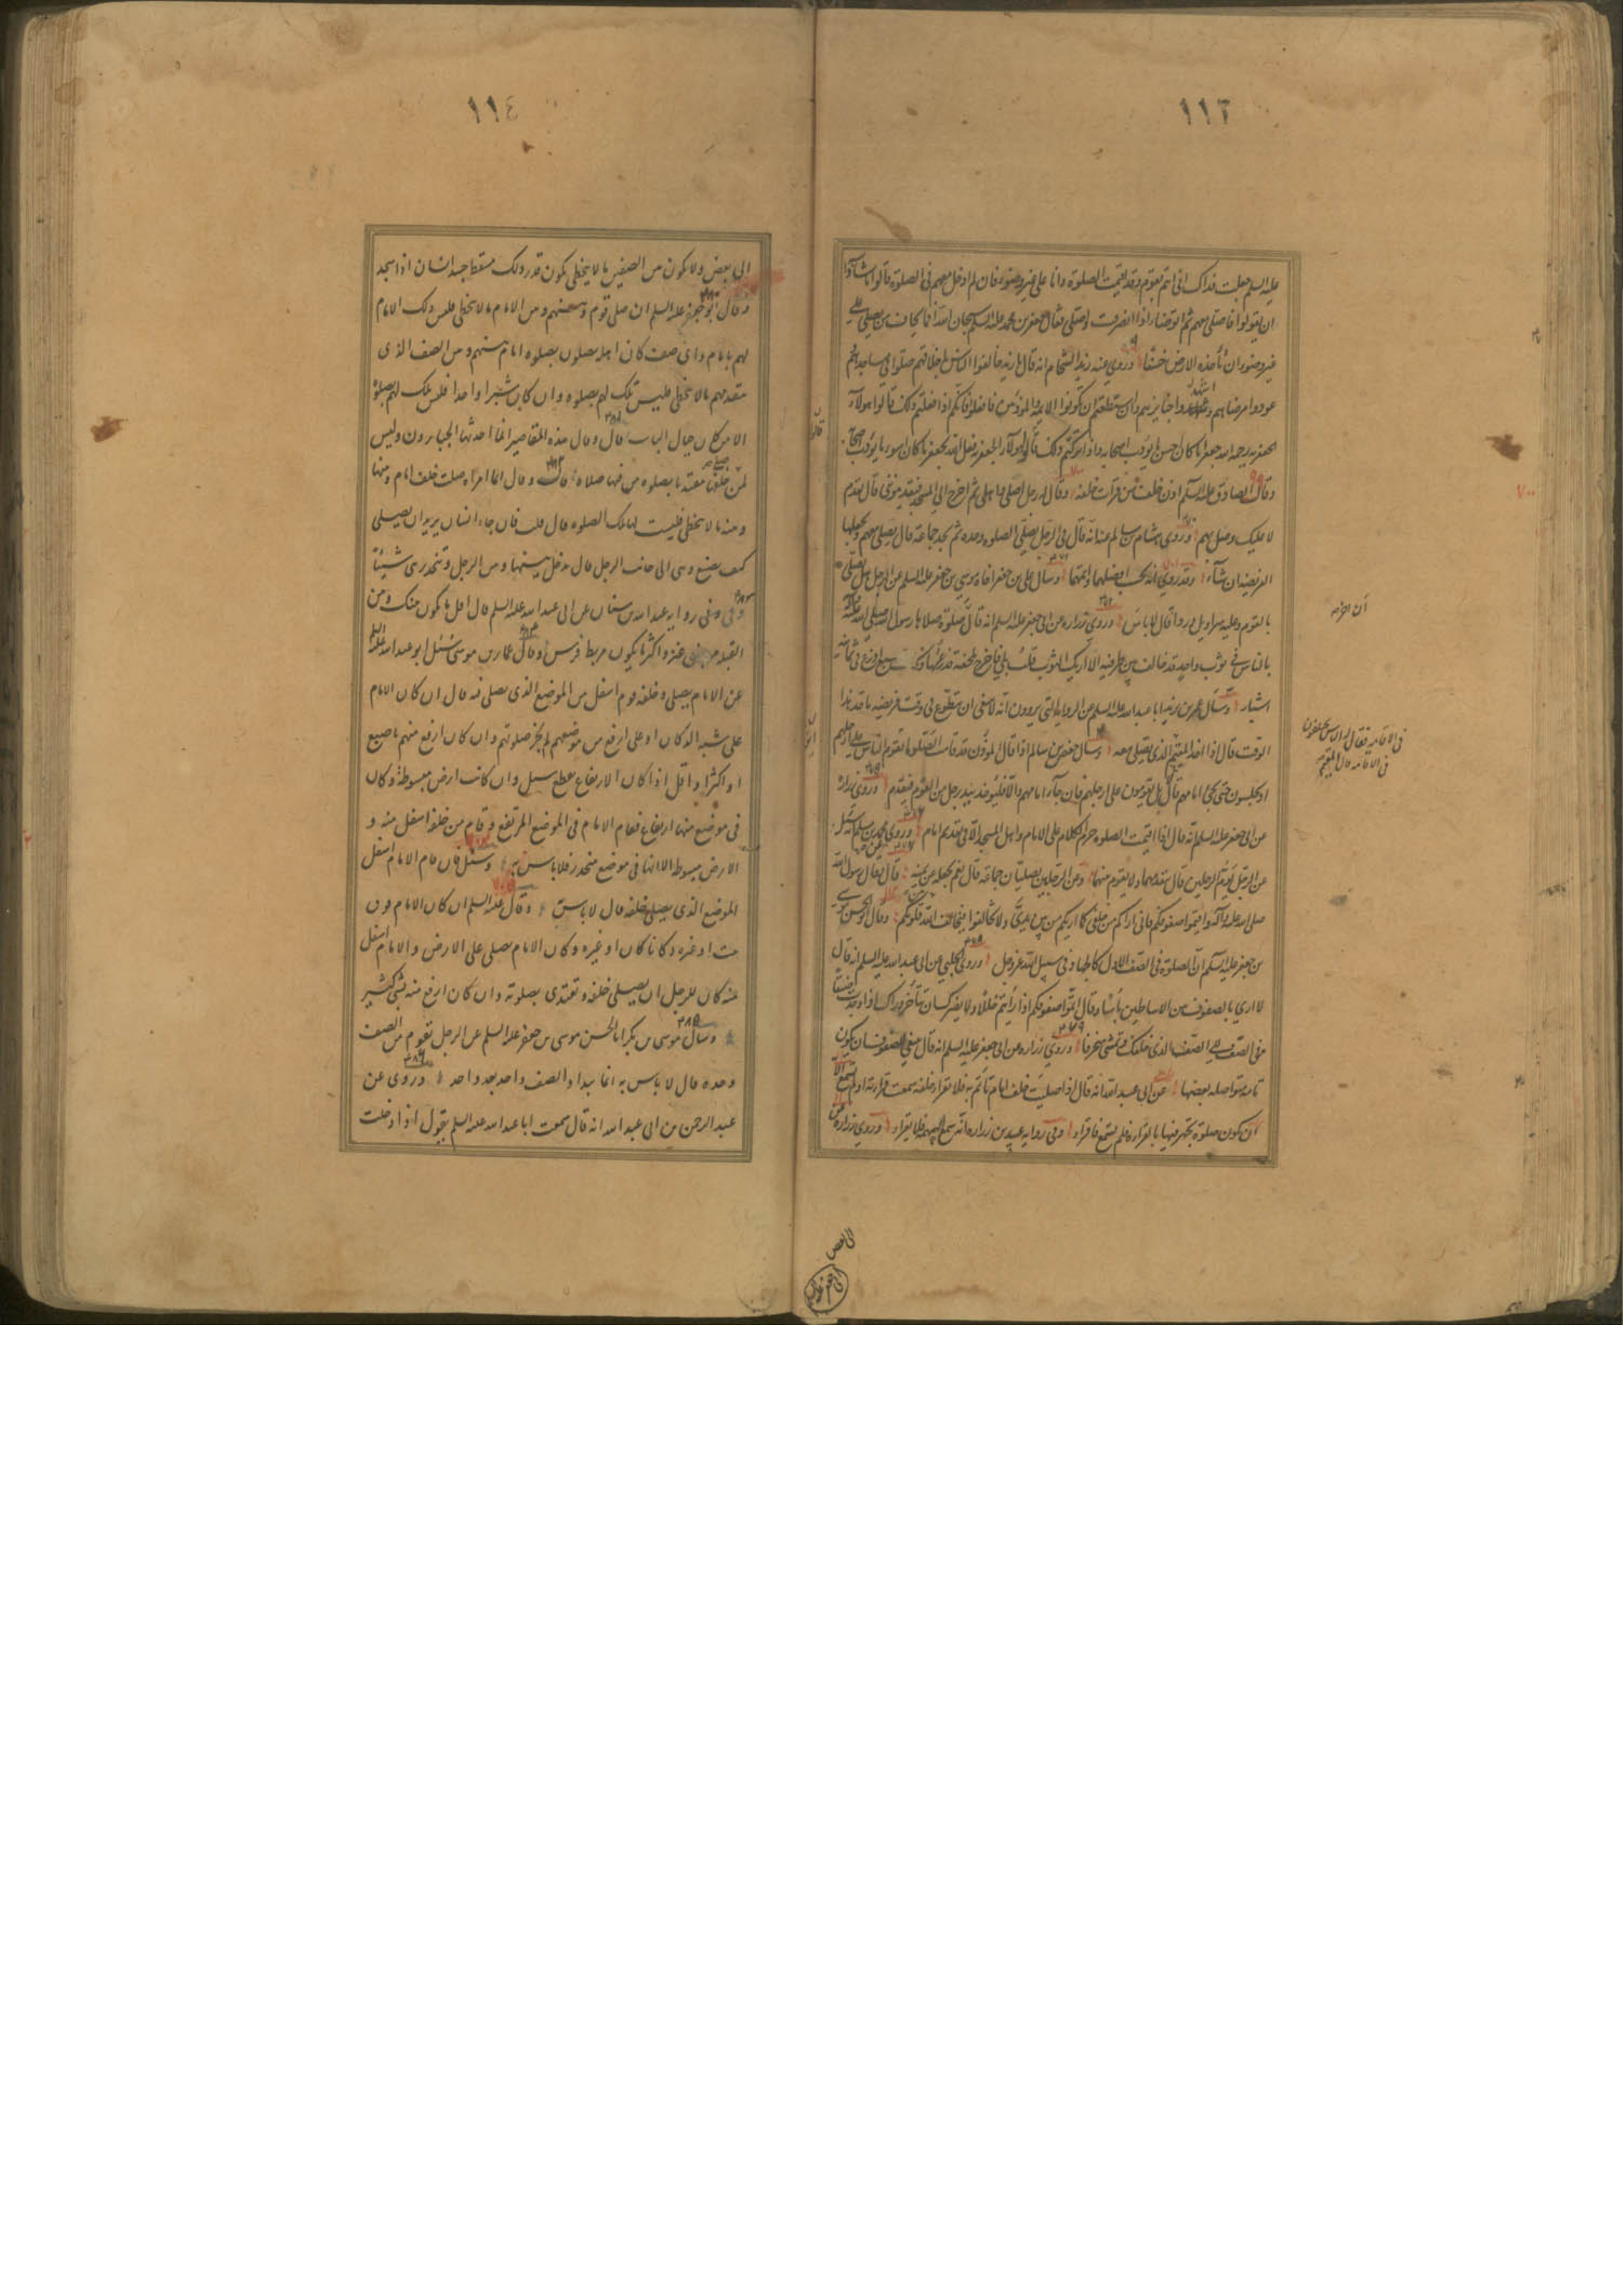 ١١٣
عليه السلم جعلت فداك انى امر بقوم وقد اقيمت الصلوة وانا على غير وضوء فان لم ادخل معهم فى الصلوة قالوا ما شاؤا
ان يقولوا فاصلى معهم ثم اتوضأ اذا انصرفت واصلى فقال جعفر بن محمد عليه السلم سبحان الله افما يخاف من يصلى على
غير وضوء ان تأخذه الارض خسفا وروى عنه زيد الشحام انه قال يا زيد خالقوا الناس باخلاقهم صلوا فى مساجدهم
عودوا مرضاهم واشهدوا جنايزهم وان استطعتم ان تكونوا الائمة والمؤذنين فافعلوا فانكم اذا فعلتم ذلك قالوا هولاء
الجعفرية رحم الله جعفرا ما كان احسن ما يؤدب اصحابه واذا تركتم ذلك قالوا هولاء الجعفرية فعل الله بجعفر ما كان اسوء ما يؤدب اصحابه
وقال الصادق عليه السلم اذن خلف من قرأت خلفه وقال له رجل اصلى فى اهلى ثم اخرج الى المسجد فيقدمونى قال تقدم
لا عليك وصل بهم وروى هشام بن سالم عنه انه قال فى الرجل يصلى الصلوة وحده ثم يجد جماعة قال يصلى معهم ويجعلها
الفريضة ان شاء وقد روى انه يحسب له افضلهما واتمهما وسال على بن جعفر اخاه موسى بن جعفر عليه السلم عن الرجل هل يصلى
بالقوم وعليه سراويل ورداء قال لا باس وروى زرارة عن ابى جعفر عليه السلم انه قال صلوة صلاها رسول الله صلى الله عليه وآله
بالناس فى ثوب واحد قد خالف بين طرفيه الا اريك الثوب قلت بلى فاخرج ملحفة فذرعتها وكانت سبع اذرع فى ثمانية
اشبار وسال عمر بن يزيد ابا عبد الله عليه السلم عن الرواية التى يروون انه لا ينبغى ان يتطوع فى وقت فريضة ما حد هذا
الوقت قال اذا اخذ المقيم الذى يصلى معه وسال حفص بن سالم اذا قال المؤذن قد قامت الصلوة ايقوم الناس على ارجلهم
او يجلسون حتى يجئ امامهم قال بل يقومون على ارجلهم فان جاء امامهم والا فليؤخذ بيد رجل من القوم فيقدم وروى زرارة
عن ابى جعفر عليه السلم انه قال اذا اقيمت الصلوة حرم الكلام على الامام واهل المسجد الا فى تقديم امام وروى محمد بن مسلم انه سئل
عن الرجل يؤم الرجلين قال يتقدمهما ولا يقوم بينهما وعن الرجلين يصليان جماعة قال نعم يجعله عن يمينه قال وقال رسول الله
صلى الله عليه وآله اقيموا صفوفكم فانى اراكم من خلفى كما اريكم من بين يدى ولا تخالفوا فيخالف الله قلوبكم وقال ابو الحسن موسى
بن جعفر عليه السلم ان الصلوة فى الصف الاول كالجهاد فى سبيل الله عز وجل وروى الحلبى عن ابى عبد الله عليه السلم انه قال
لا ارى بالصفوف بين الاساطين بأسا وقال اتموا صفوفكم اذا رأيتم خللا ولا يضرك ان تتأخر وراك اذا وجدت ضيقا
فى الصف الى الصف الذى خلفك وتمشى منحرفا وروى زرارة عن ابى جعفر عليه السلم انه قال ينبغى للصفوف ان تكون
تامة متواصلة بعضها عن ابى عبد الله انه قال اذا صليت خلف امام تأتم به فلا تقرأ خلفه سمعت قراءته او لم تسمع الا
ان تكون صلوة يجهر فيها بالقراءة فلم تسمع فاقرأ وفى رواية عبيد بن زرارة انه سمع الهمهمة فلا يقرأ وروى زرارة عن
فى الاقامة فقال له ان الناس يختلفون
فى الاقامة قال المقيم
٧٠٠
الى بعض
١١٤
الى بعض ولا يكون بين الصفين ما لا يتخطى يكون قدر ذلك مسقط جسد انسان اذا سجد
وقال ابو جعفر عليه السلم ان صلى قوم وبينهم وبين الامام ما لا يتخطى فليس ذلك الامام
لهم بامام واى صف كان اهله يصلون بصلوة امام وبينهم وبين الصف الذى
تقدمهم ما لا يتخطى فليس تلك لهم بصلوة وان كان شبرا او احدا فليس تلك لهم بصلوة
الا من كان حيال الباب قال وقال هذه المقاصير انما احدثها الجبارون وليس
لمن صلى خلفها مقتديا بصلوة من فيها صلاة قال وقال ايما امرأة صلت خلف امام وبينها
وبينه ما لا يتخطى فليست لها تلك الصلوة قال قلت فان جاء انسان يريد ان يصلى
كيف يصنع وهى الى جانب الرجل قال يدخل بينها وبين الرجل وتنحدر هى شيئا
وفى رواية عبد الله بن سنان عن ابى عبد الله عليه السلم قال اقل ما يكون بينك وبين
القبلة مربض عنز واكثر ما يكون مربط فرس وقال عمار بن موسى سئل ابو عبد الله عليه السلم
عن الامام يصلى وخلفه قوم اسفل من الموضع الذى يصلى فيه قال ان كان الامام
على شبه الدكان او على ارفع من موضعهم لم يجز صلوتهم وان كان ارفع منهم باصبع
او اكثر او اقل اذا كان الارتفاع بقطع سيل وان كانت ارض مبسوطة وكان
فى موضع منها ارتفاع فقام الامام فى الموضع المرتفع وقام من خلفه اسفل منه و
الارض مبسوطة الا انها فى موضع منحدر فلا باس به وسئل فان قام الامام اسفل
الموضع الذى يصلى خلفه قال لا باس وقال عليه السلم ان كان الامام فوق
بيت او غيره دكانا كان او غيره وكان الامام يصلى على الارض والامام اسفل
منه كان للرجل ان يصلى خلفه ويقتدى بصلوته وان كان ارفع منه بشئ كثير
وسال موسى بن بكر ابا الحسن موسى بن جعفر عليه السلم عن الرجل يقوم من الصف
وحده قال لا باس به انما يبدا والصف واحد بعد واحد وروى عن
عبد الرحمن بن ابى عبد الله انه قال سمعت ابا عبد الله عليه السلم يقول اذا دخلت